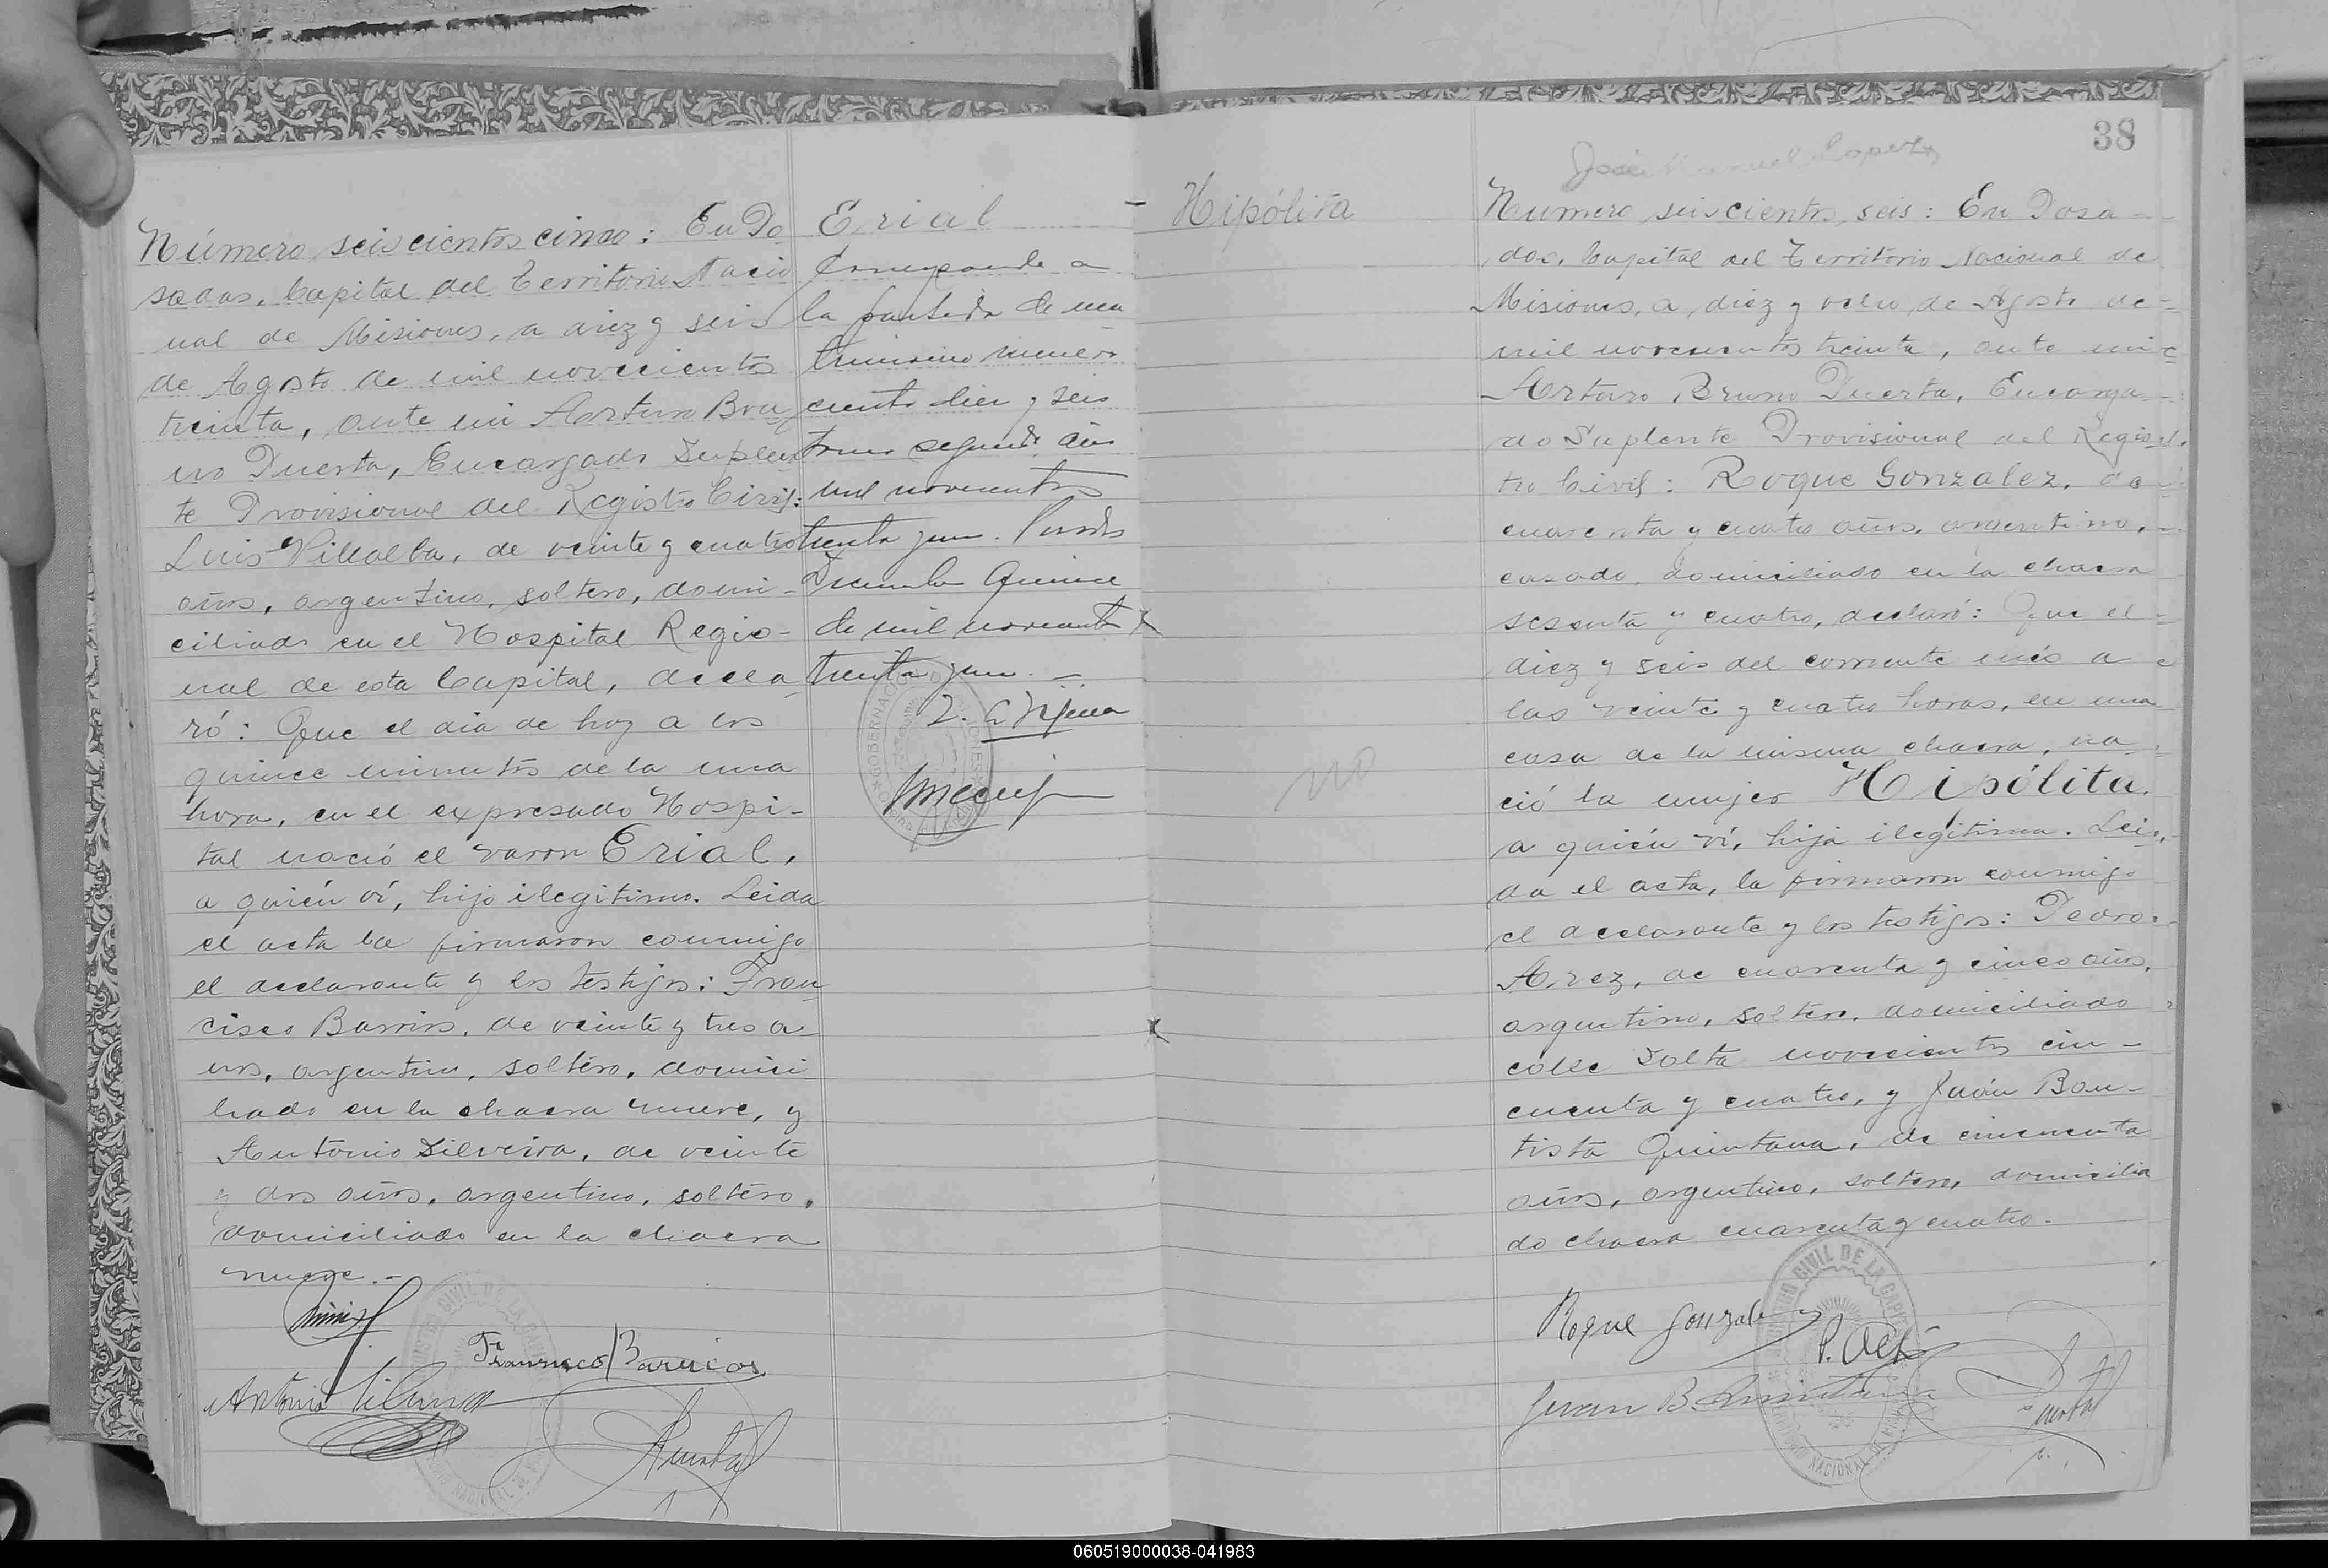 Número seiscientos cinco: En Po
sadas, Capital del Territorio Nacio
nal de Misiones, a diez y seis
de Agosto de mil novecientos
treinta, ante mi Arturo Bru
no Puerta, Encargado Suplen
te Provisional del Registro Civil:
Luis Villalba, de veinte y cuatro
años, argentino, soltero, domi-
ciliado en el Hospital Regio-
nal de esta Capital, decla
ró: Que el dia de hoy a los
quince minutos de la una
hora, en el expresado Hospi-
tal nació el varon Erial,
a quién ví, hijo ilegitimo. Leida
el acta la firmaron conmigo
el declarante y los testigos: Fran
cisco Barrios, de veinte y tres a
ños, argentino, soltero, domici
liado en la chacra nueve, y
Antonio Silveira, de veinte
y dos años, argentino, soltero,
domiciliado en la chacra
nueve.-
Francisco Barrios
Antonio
Puerta
Erial
Corresponde a
la partida de una
numero
ciento diez y seis
tomo segundo, año
mil novecientos
treinta y uno. Posadas
Diciembre Quince
de mil novecientos
treinta y uno.-
Hipólita
no
38
José Manuel Lopez
Numero seiscientos seis: En Posa
das, Capital del Territorio Nacional de
Misiones, a diez y ocho de Agosto de
mil novecientos treinta, ante mi
Arturo Bruno Puerta, Encarga
do Suplente Provisional del Regis
tro Civil: Roque Gonzalez, de
cuarenta y cuatro años, argentino,
casado, domiciliado en la chacra
sesenta y cuatro, declaró: Que el
diez y seis del corriente més a
las veinte y cuatro horas, en una
casa de la misma chacra, na
ció la mujer Hipólita,
a quién ví, hija ilegitima. Lei
da el acta, la firmaron conmigo
el declarante y los testigos: Pedro
Arez, de cuarenta y cinco años,
argentino, soltero, domiciliado
calle Salta novecientos cin-
cuenta y cuatro, y Juán Bau-
tista Quintana, de cincuenta
años, argentino, soltero, domicilia
do chacra cuarenta y cuatro.-
Roque Gonzalez
Juan B. Quintana
Puerta
REGISTRO CIVIL DE LA CAPITAL
060519000038-041983